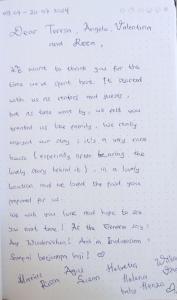 09.07 - 20.07.2024
Dear Teresa, Angelo, Valentina
and Rosa,
We want to thank you for the
time we've spent here. It started
with us as renters and guests,
but as time went by, we felt you
treated us like family. We really
enjoyed our stay; it's a very nice
house (especially after hearing the
lovely story behind it), in a lovely
location and we loved the food you
prepared for us.
We wish you love and hope to see
you next time! As the Germans say:
Auf Wiedersehen! And in Indonesian:
Sampai berjumpa lagi!
Marius Ayu Helvetia
Susan Helena